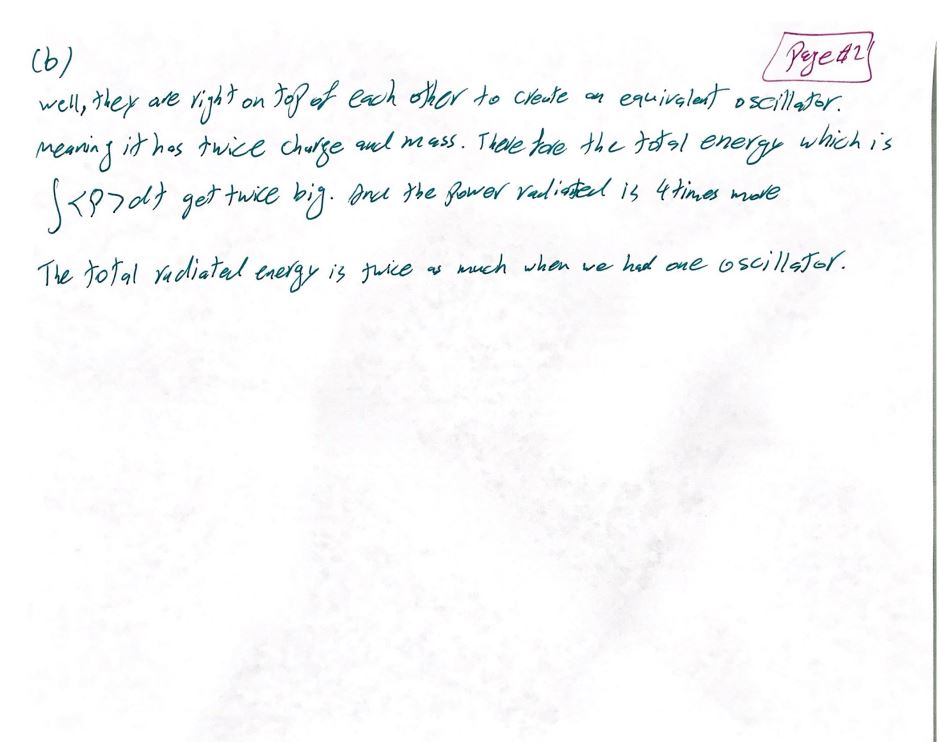 (b)
Page #2
well, they are right on top of each other to create an equivalent oscillator.
meaning it has twice charge and mass. Therefore the total energy which is
∫<P>dt get twice big. And the power radiated is 4 times more
The total radiated energy is twice as much when we had one oscillator.